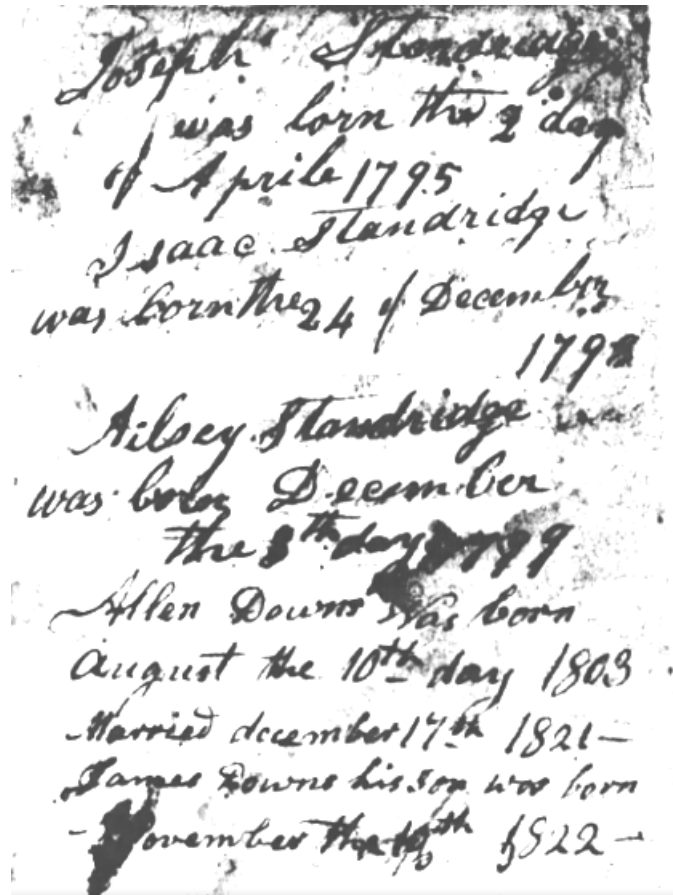 Joseph Standridge
was born the 2 day
of Aprile 1795
Isaac Standridge
was born the 24 of December
Ailsey Standridge
was born December
the 8th day 1799
Allen Downs Was born
August the 10th day 1803
Married december 17th 1821 —
James Downs his son was born
- November the 1822 —